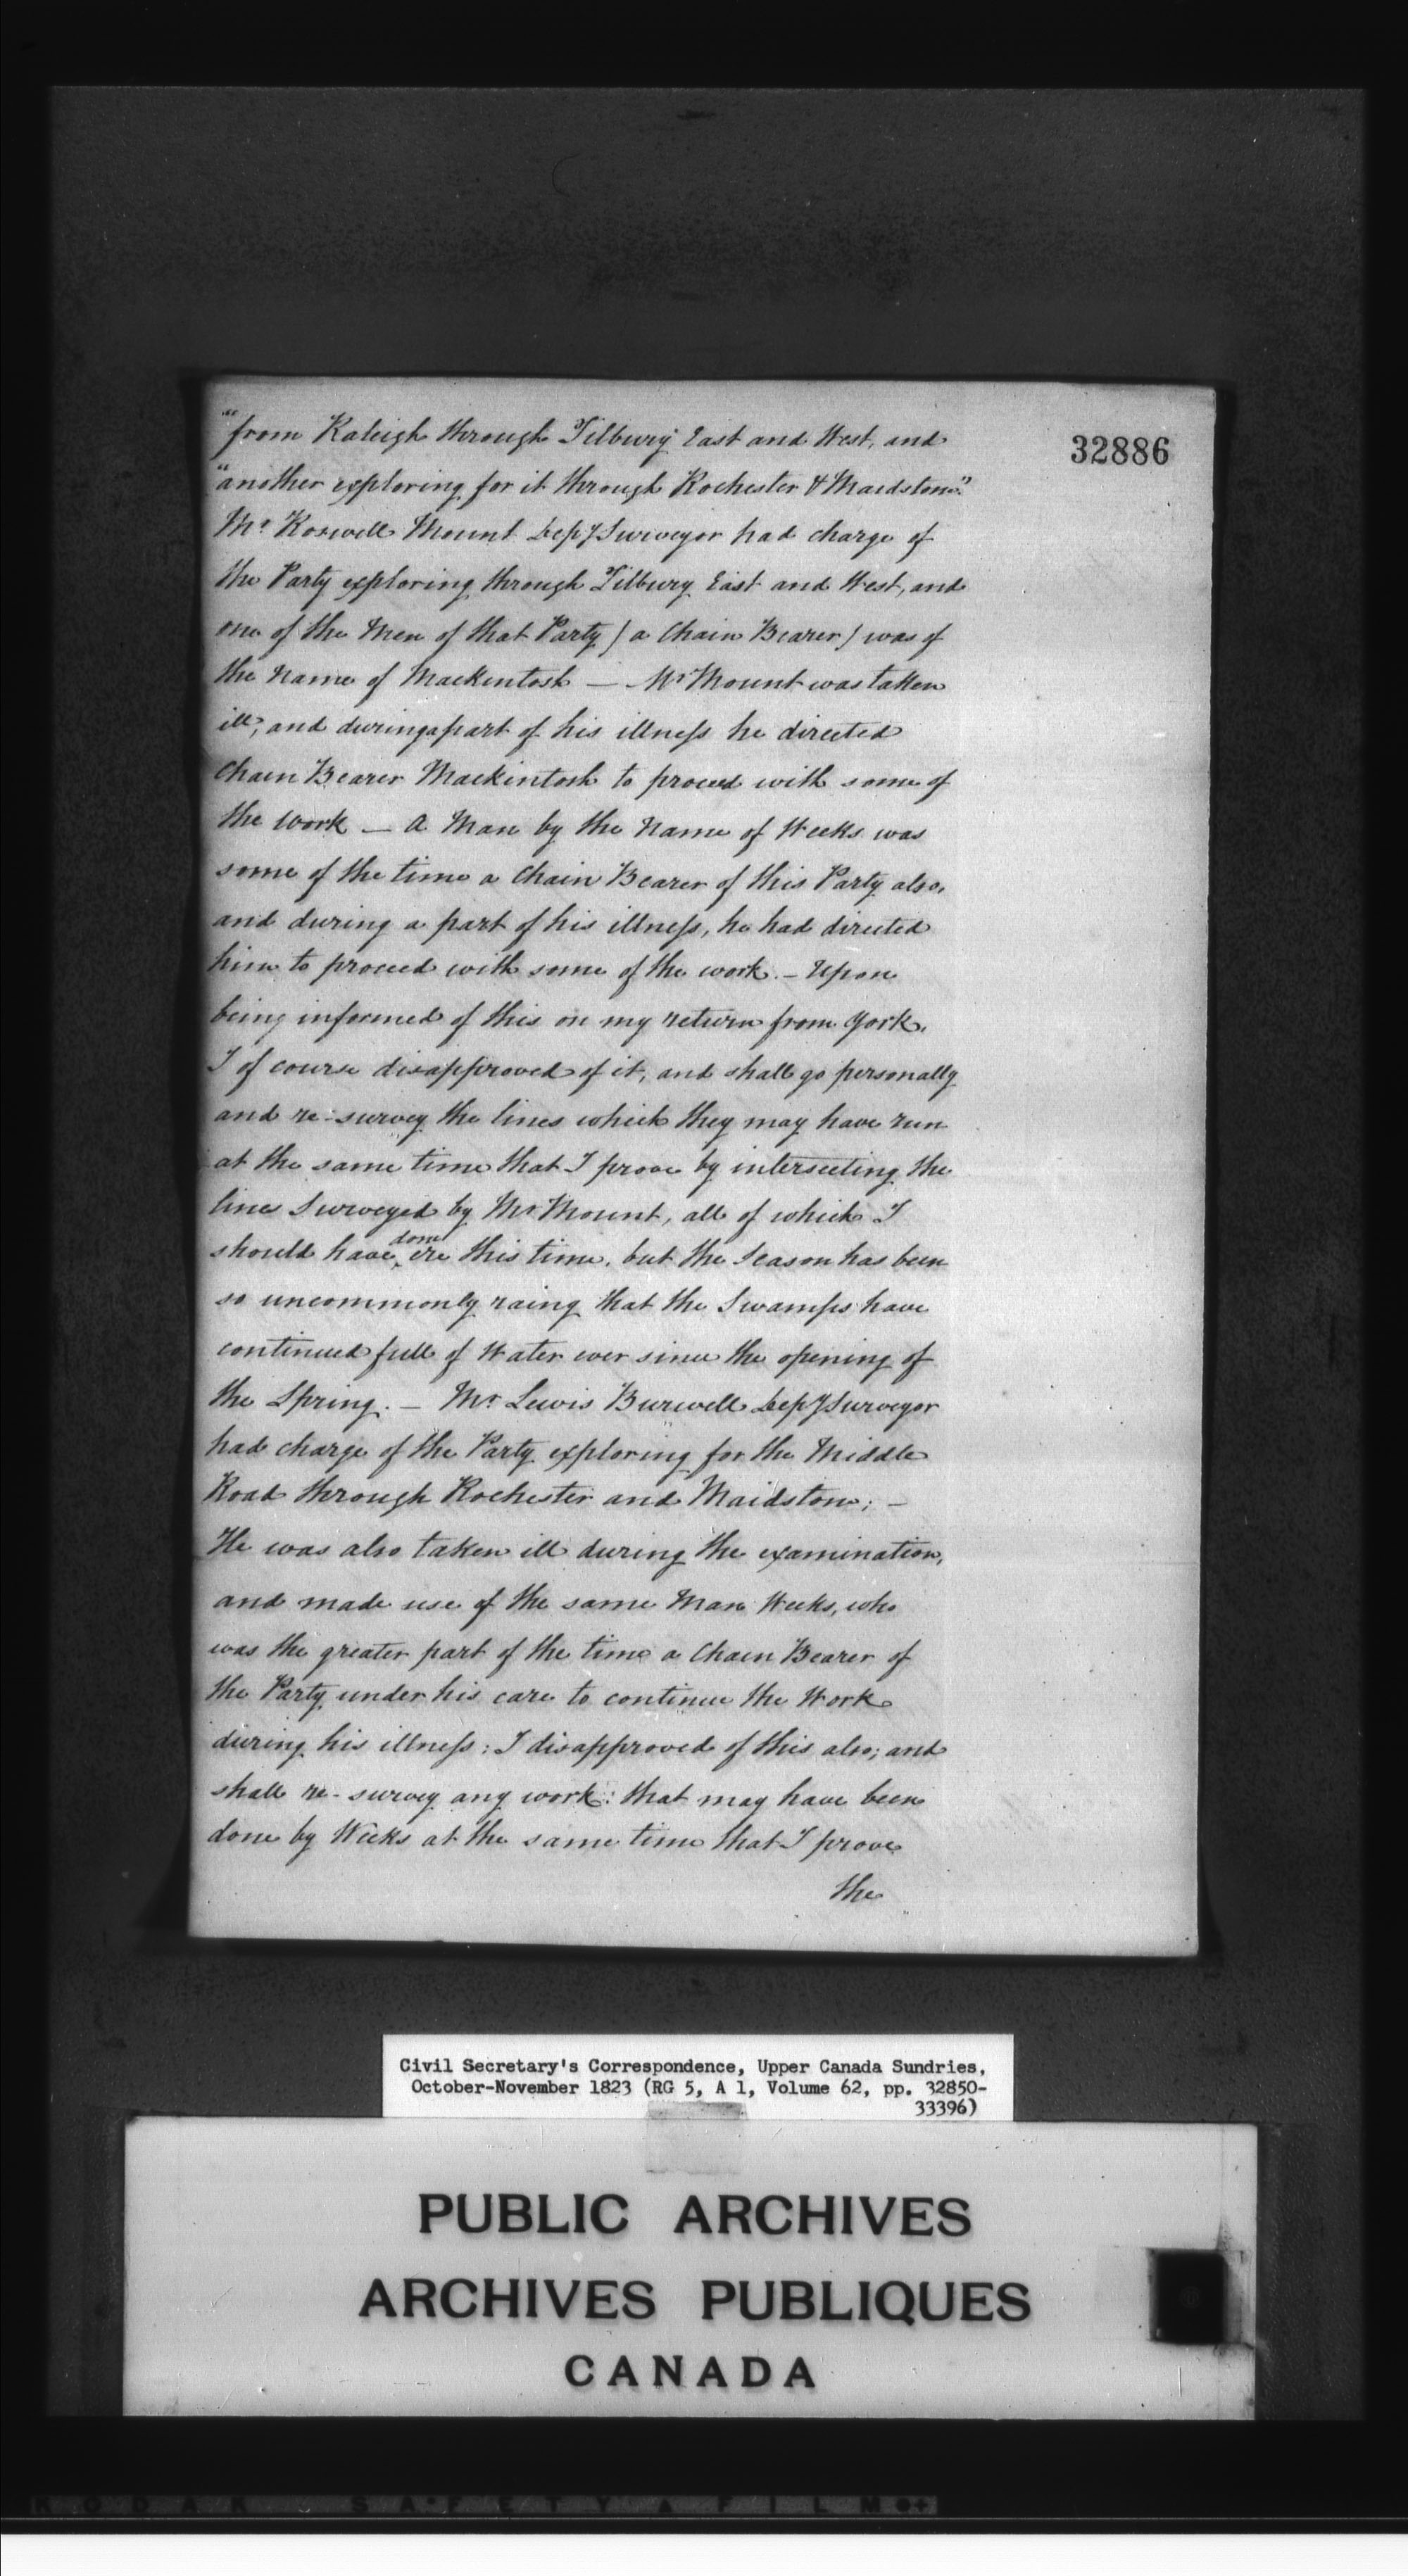 32886
"from Raleigh through Tilbury East and West, and
"another exploring for it through Rochester & Maidstone."
Mr Roswell Mount Depy Surveyor had charge of
the Party exploring through Tilbury East and West, and
one of the Men of that Party (a Chain Bearer) was of
the name of Mackintosh — Mr Mount was taken
ill; and during a part of his illness he directed
Chain Bearer Mackintosh to proceed with some of
the work — A Man by the Name of Weeks was
some of the time a Chain Bearer of this Party also,
and during a part of his illness, he had directed
him to proceed with some of the work. — Upon
being informed of this on my return from York,
I of course disapproved of it, and shall go personally
and re-survey the lines which they may have run
at the same time that I prove by intersecting the
lines Surveyed by Mr Mount, all of which I
should have done ere this time, but the Season has been
so uncommonly raing that the Swamps have
continued full of Water ever since the opening of
the Spring. — Mr Lewis Burwell Depy Surveyor
had charge of the Party exploring for the Middle
Road through Rochester and Maidstone; —
He was also taken ill during the examination,
and made use of the same Man Weeks, who
was the greater part of the time a Chain Bearer of
the Party under his care to continue the Work
during his illness: I disapproved of this also; and
shall re-survey any work that may have been
done by Weeks at the same time that I prove
the
Civil Secretary's Correspondence, Upper Canada Sundries,
October-November 1823 (RG 5, A 1, Volume 62, pp. 32850-
33396)
PUBLIC ARCHIVES
ARCHIVES PUBLIQUES
CANADA
KODAK SAFETY FILM